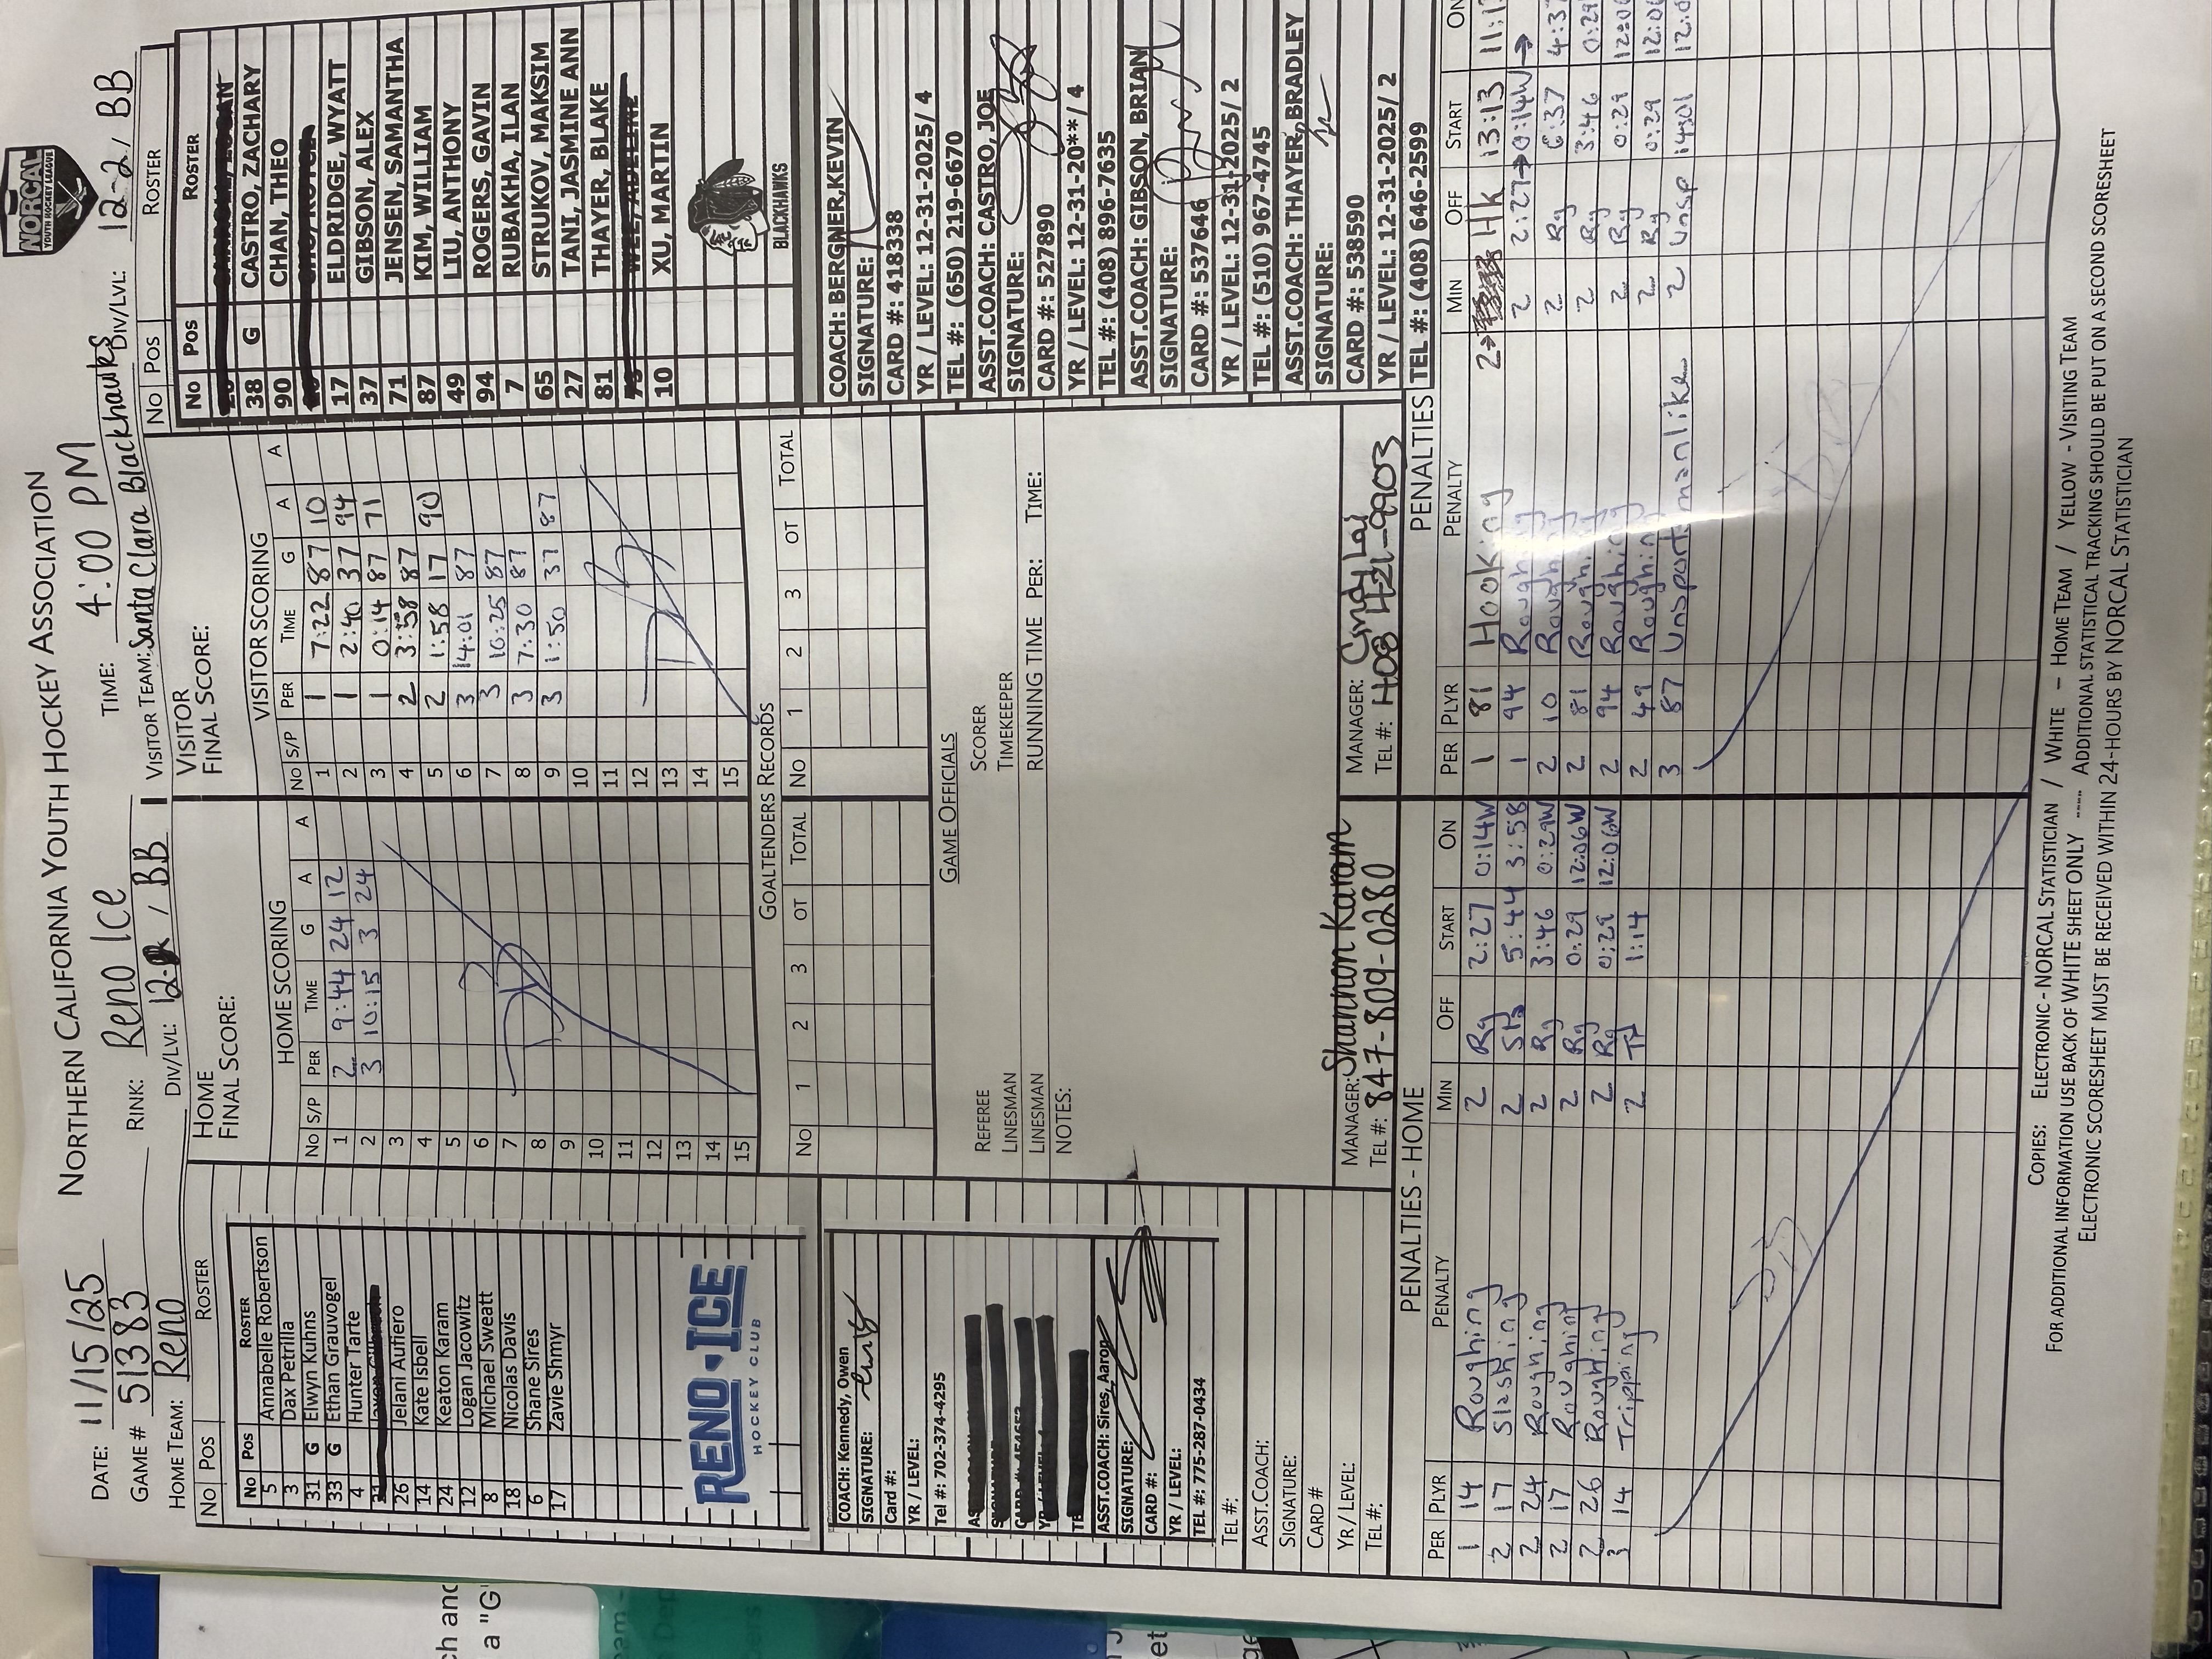 NORCAL
YOUTH HOCKEY LEAGUE
NORTHERN CALIFORNIA YOUTH HOCKEY ASSOCIATION
DATE: 11/15/25 RINK: Reno Ice TIME: 4:00 PM
GAME # 51383 DIV/LVL: / BB VISITOR TEAM: Santa Clara Blackhawks DIV/LVL: 12-2 / BB
HOME TEAM: Reno
NO POS ROSTER
No Pos ROSTER
5 Annabelle Robertson
3 Dax Petrilla
31 G Elwyn Kuhns
33 G Ethan Grauvogel
4 Hunter Tarte
26 Jelani Aufiero
14 Kate Isbell
24 Keaton Karam
12 Logan Jacowitz
8 Michael Sweatt
18 Nicolas Davis
6 Shane Sires
17 Zavie Shmyr
RENO ICE
HOCKEY CLUB
HOME
FINAL SCORE:
HOME SCORING
NO S/P PER TIME G A A
1 2 9:44 24 12
2 3 10:15 3 24
3
4
5
6
7
8
9
10
11
12
13
14
15
VISITOR
FINAL SCORE:
VISITOR SCORING
NO S/P PER TIME G A A
1 1 7:22 87 10
2 1 2:40 37 94
3 1 0:14 87 71
4 2 3:58 87
5 2 1:58 17 90
6 3 14:01 87
7 3 10:25 87
8 3 7:30 87
9 3 1:50 37 87
10
11
12
13
14
15
NO POS ROSTER
No Pos ROSTER
38 G CASTRO, ZACHARY
90 CHAN, THEO
17 ELDRIDGE, WYATT
37 GIBSON, ALEX
71 JENSEN, SAMANTHA
87 KIM, WILLIAM
49 LIU, ANTHONY
94 ROGERS, GAVIN
7 RUBAKHA, ILAN
65 STRUKOV, MAKSIM
27 TANI, JASMINE ANN
81 THAYER, BLAKE
10 XU, MARTIN
BLACKHAWKS
GOALTENDERS RECORDS
NO 1 2 3 OT TOTAL NO 1 2 3 OT TOTAL
GAME OFFICIALS
REFEREE SCORER
LINESMAN TIMEKEEPER
LINESMAN RUNNING TIME PER: TIME:
NOTES:
COACH: Kennedy, Owen
SIGNATURE:
Card #:
YR / LEVEL:
Tel #: 702-374-4295
ASST.COACH: Sires, Aaron
SIGNATURE:
CARD #:
YR / LEVEL:
TEL #: 775-287-0434
TEL #:
ASST.COACH:
SIGNATURE:
CARD #
YR / LEVEL:
TEL #:
COACH: BERGNER,KEVIN
SIGNATURE:
CARD #: 418338
YR / LEVEL: 12-31-2025/ 4
TEL #: (650) 219-6670
ASST.COACH: CASTRO, JOE
SIGNATURE:
CARD #: 527890
YR / LEVEL: 12-31-20**/ 4
TEL #: (408) 896-7635
ASST.COACH: GIBSON, BRIAN
SIGNATURE:
CARD #: 537646
YR / LEVEL: 12-31-2025/ 2
TEL #: (510) 967-4745
ASST.COACH: THAYER, BRADLEY
SIGNATURE:
CARD #: 538590
YR / LEVEL: 12-31-2025/ 2
TEL #: (408) 646-2599
MANAGER: Shannon Karam
TEL #: 847-809-0280
MANAGER: Cindy Lai
TEL #: 408 421-9903
PENALTIES - HOME
PER PLYR PENALTY MIN OFF START ON
1 14 Roughing 2 Rg 2:27 0:14W
2 17 Slashing 2 Sla 5:44 3:58
2 24 Roughing 2 Rg 3:46 0:29W
2 17 Roughing 2 Rg 0:29 12:06W
2 26 Roughing 2 Rg 0:29 12:06W
3 14 Tripping 2 1:14
PENALTIES
PER PLYR PENALTY MIN OFF START ON
1 81 Hooking 2 HK 13:13
1 94 Roughing 2 2:27 0:14W
2 10 Roughing 2 Rg 6:37 4:37
2 81 Roughing 2 Rg 3:46
2 94 Roughing 2 Rg 0:29
2 49 Roughing 2 Rg 0:29
3 87 Unsportsmanlike 2 Unsp
COPIES: ELECTRONIC - NORCAL STATISTICIAN / WHITE – HOME TEAM / YELLOW - VISITING TEAM
FOR ADDITIONAL INFORMATION USE BACK OF WHITE SHEET ONLY ---- ADDITIONAL STATISTICAL TRACKING SHOULD BE PUT ON A SECOND SCORESHEET
ELECTRONIC SCORESHEET MUST BE RECEIVED WITHIN 24-HOURS BY NORCAL STATISTICIAN